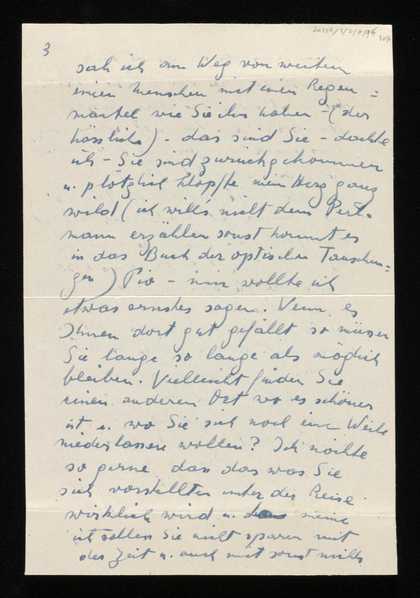 3
sah ich am Weg von weitem
einen Menschen mit einem Regen=
mantel wie Sie ihn haben – (der
hässliche) – das sind Sie – dachte
ich – Sie sind zurückgekommen
u. plötzlich klopfte mein Herz ganz
wild (ich will's nicht dem Pert-
mann erzählen sonst kommt es
in das Buch der optischen Täuschun-
gen) Pio – nun wollte ich
etwas ernstes sagen. Wenn es
Ihnen dort gut gefällt so müssen
Sie lange so lange als möglich
bleiben. Vielleicht finden Sie
einen anderen Ort wo es schöner
ist u. wo Sie sich noch eine Weile
niederlassen wollen? Ich möchte
so gerne dass das was Sie
sich vorstellten unter der Reise
wirklich wird u. meine
ich sollen Sie nicht sparen mit
der Zeit u. auch mit sonst nichts